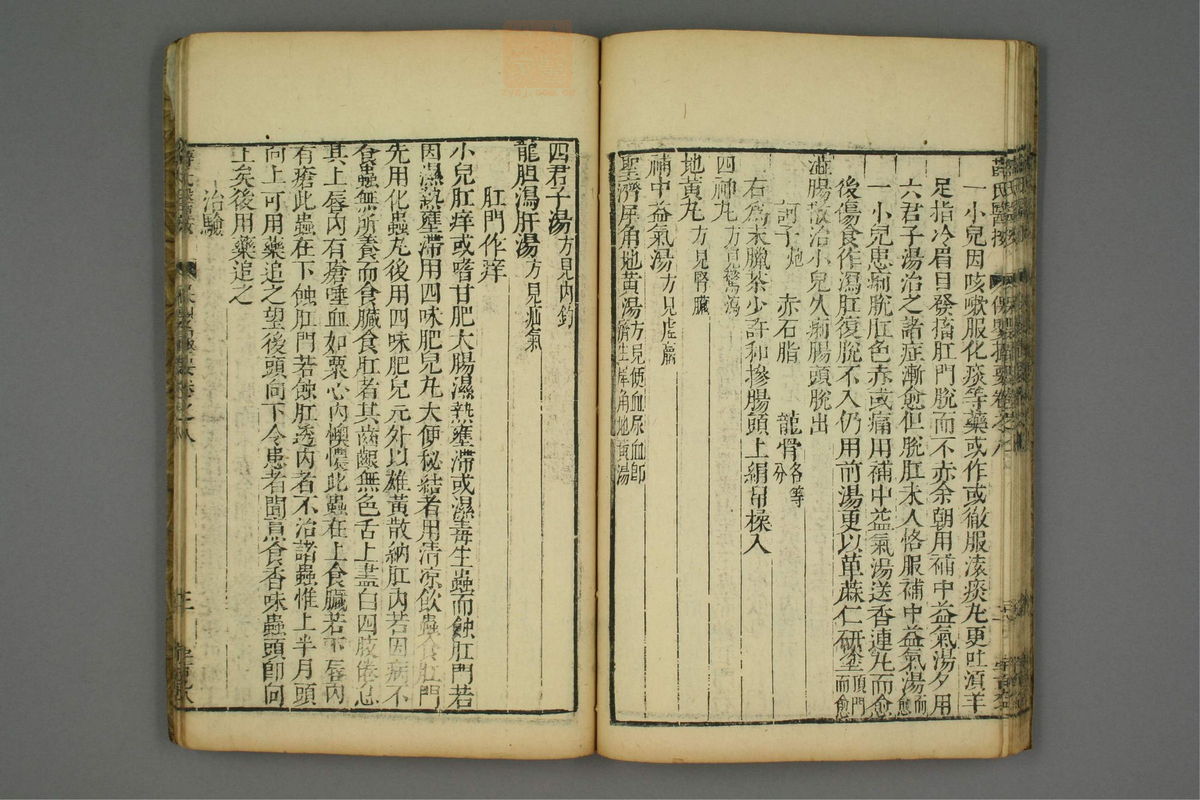 一小兒因咳嗽服化痰等藥或作或徹服滚痰丸更吐涎羊
足指冷眉目發搐肛門脫而不赤余朝用補中益氣湯夕用
六君子湯治之諸症漸愈但脫肛未入恪服補中益氣湯而愈
一小兒患痢脫肛色赤或痛用補中益氣湯送香連丸而愈
後傷食作瀉肛復脫不入仍用前湯更以萆蔴仁研塗頂門而愈
澁腸散治小兒久痢腸頭脫出
訶子炮 赤石脂 龍骨各等分
右爲末臘茶少許和摻腸頭上絹帛揉入
四神丸方見驚瀉
地黃丸方見腎臟
補中益氣湯方見虛羸
聖濟犀角地黃湯方見便血尿血卽濟生犀角地黃湯
四君子湯方見內釣
龍胆瀉肝湯方見疝氣
肛門作癢
小兒肛痒或嗜甘肥大腸濕熱壅滯或濕毒生蟲而蝕肛門若
因濕熱壅滯用四味肥兒丸大便秘結者用清凉飲蟲食肛門
先用化蟲丸後用四味肥兒元外以雄黃散納肛內若因病不
食蟲無所養而食臟食肛者其齒齦無色舌上盡白四肢倦怠
其上唇內有瘡唾血如粟心內懊憹此蟲在上食臟若下唇內
有瘡此蟲在下蝕肛門若蝕肛透內者不治諸蟲惟上半月頭
向上可用藥追之望後頭向下令患者聞煎食香味蟲頭卽向
上矣後用藥追之
治驗
薛氏醫按 保嬰撮要卷之八